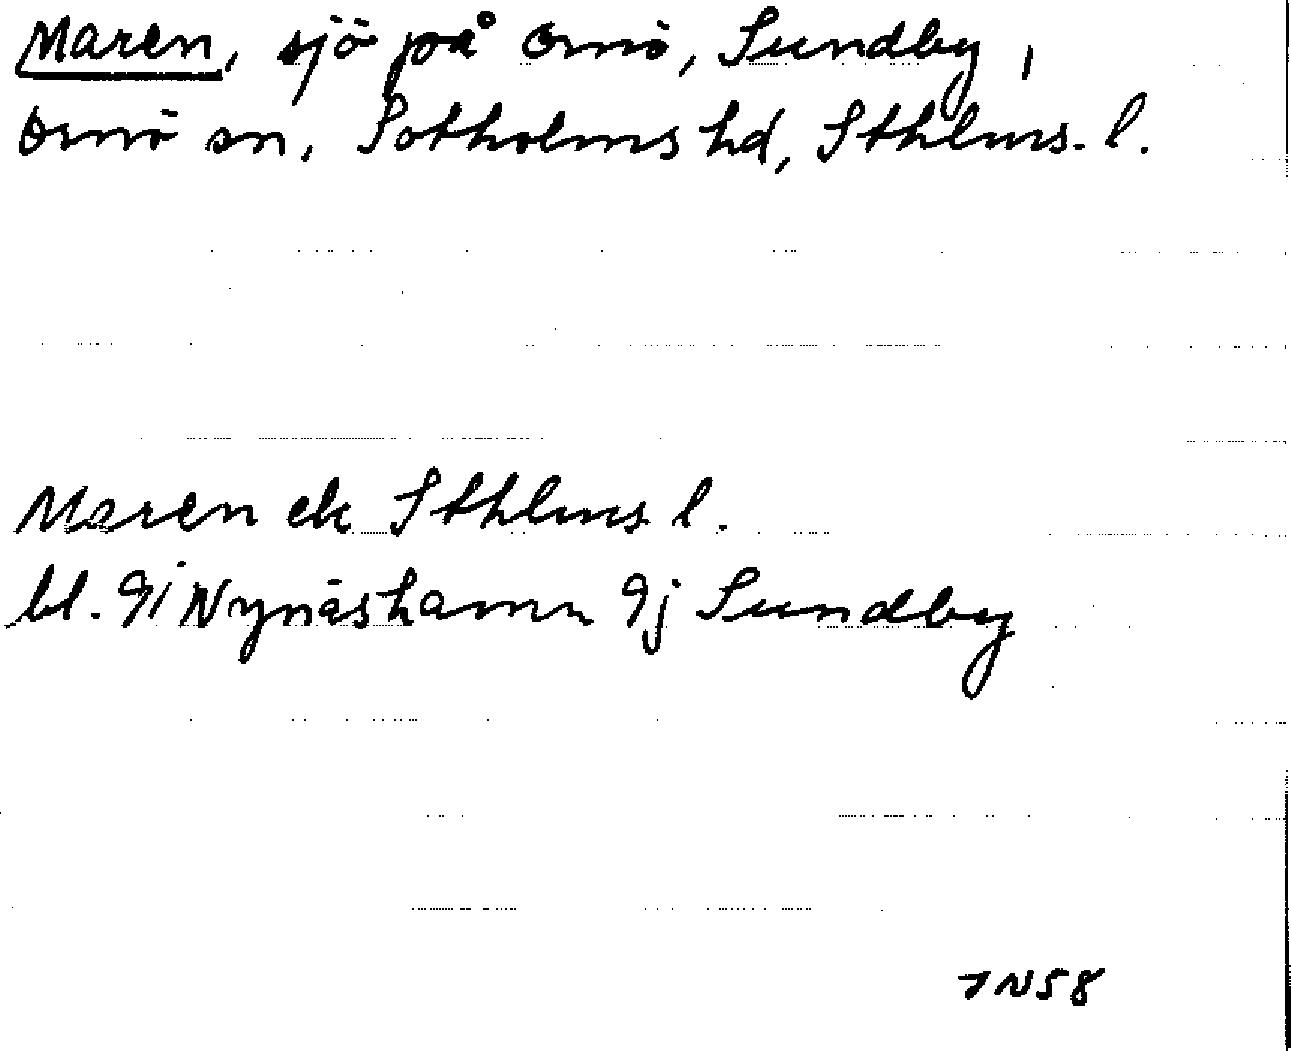 Maren, sjö på Ornö, Sundby,
Ornö sn, Sotholms hd, Sthlms. l.
Maren ek Sthlms l.
bl. 9i Nynäshamn 9j Sundby
7N58